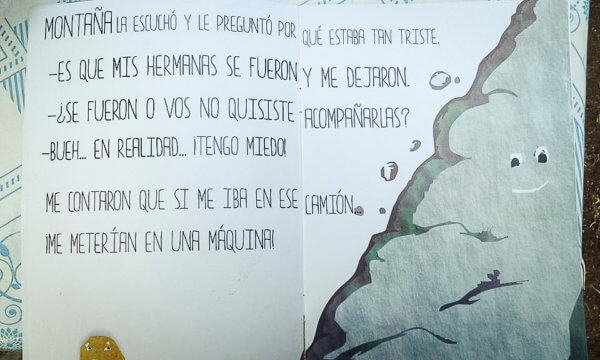 MONTAÑA LA ESCUCHÓ Y LE PREGUNTÓ POR QUÉ ESTABA TAN TRISTE.
-ES QUE MIS HERMANAS SE FUERON Y ME DEJARON.
-¿SE FUERON O VOS NO QUISISTE ACOMPAÑARLAS?
-BUEH... EN REALIDAD... ¡TENGO MIEDO!
ME CONTARON QUE SI ME IBA EN ESE CAMIÓN...
¡ME METERÍAN EN UNA MÁQUINA!